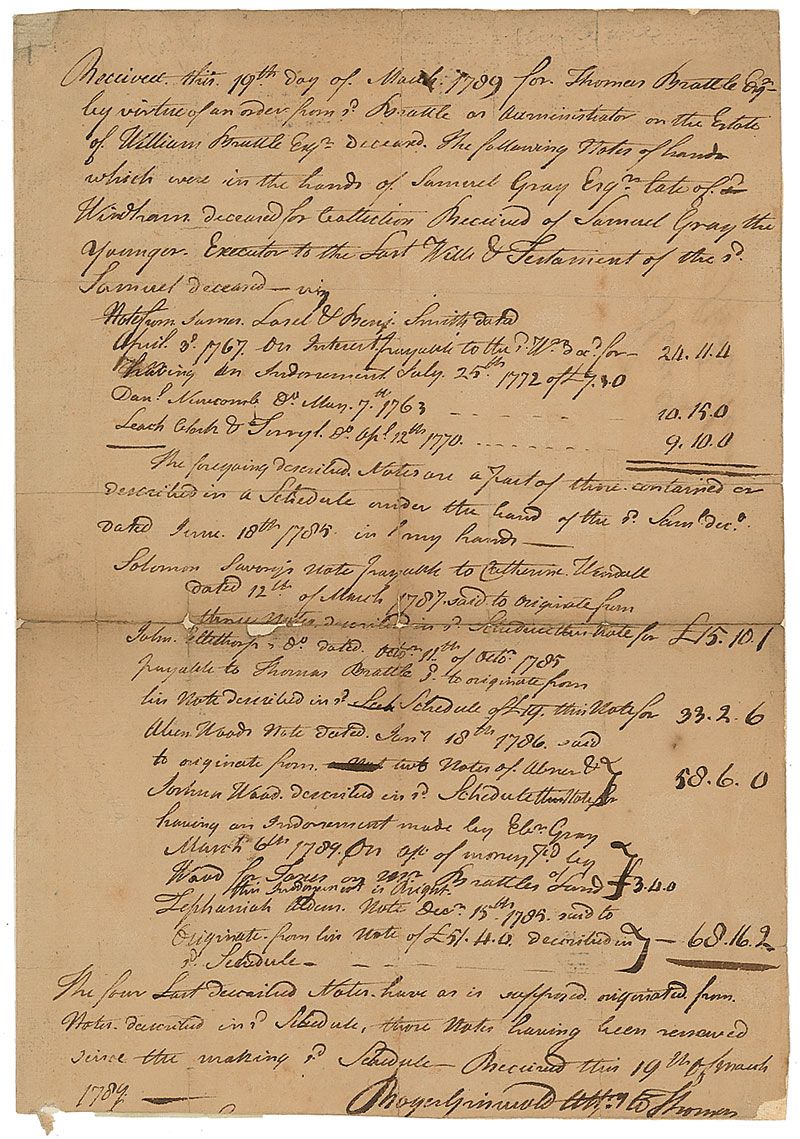 Received this 19th day of March 1789 for Thomas Brattle Esqr
by virtue of an order from sd Brattle as Administrator on the Estate
of William Brattle Esqr deceased. The following Notes of hand
which were in the hands of Samuel Gray Esqr late of
Windham deceased for Collection Received of Samuel Gray the
Younger Executor to the Last Will & Testament of the sd
Samuel deceased — viz
Note from James Lasel & Benj. Smith dated
April 3d 1767. On Interest payable to the sd Wm decd for — 24.11.4
having an Indorsement July 25th 1772 of £7.3.0
Danl Newcomb do May 7th 1763 10.15.0
Leach Clark & Terryl do Apl 12th 1770. 9.10.0
The foregoing described Notes are a Part of those contained or
described in a Schedule under the hand of the sd Saml decd
dated June 18th 1785 in my hands —
Solomon Savery's Note payable to Catherine Wendell
dated 12th of March 1787 said to originate from
three Notes described in sd Schedule this Note for £15.10.1
John do dated Octor 11th of Octor 1785
payable to Thomas Brattle sd to originate from
his Note described in sd Schedule of £19. this Note for 33.2.6
Abner Woods Note dated Jany 18th 1786 said
to originate from two Notes of Abner &
Joshua Wood described in sd Schedule this Note for 58.6.0
having an Indorsement made by Ebr Gray
March 6th 1789 On of money pd by
Wood for Taxes on Mr Brattles Land £3.4.0
this Indorsement is Right
Zephaniah Alden Note Decr 15th 1785 said to
Originate from his Note of £51.4.0 described in — 68.16.2
sd Schedule —
The four Last described Notes have as is supposed originated from
Notes described in sd Schedule, those Notes having been renewed
since the making sd Schedule — Received this 19th of March
1789 —
Roger Griswold Atty to Thomas